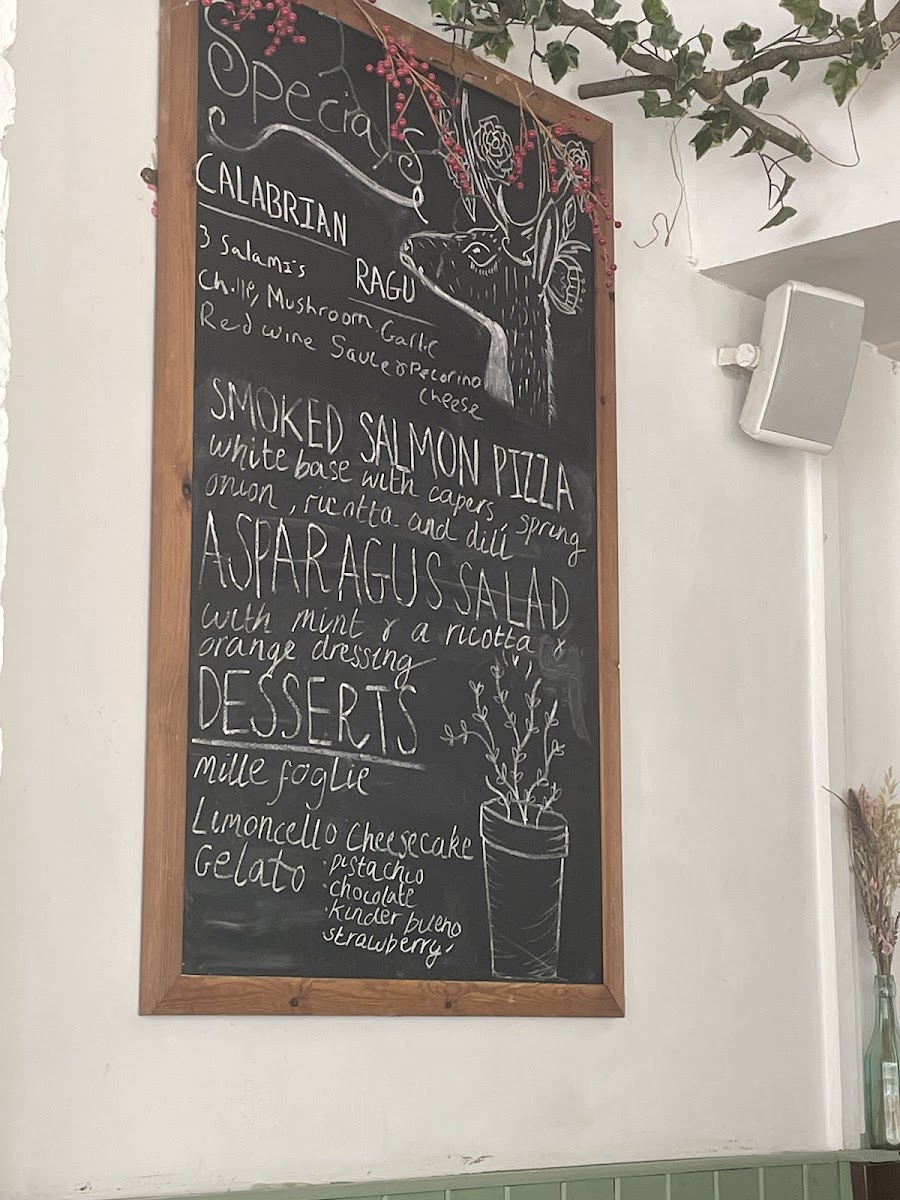 Specials
CALABRIAN
RAGU
3 Salami's
Chille, Mushroom Garlic
Red wine Sauce & Pecorino
cheese
SMOKED SALMON PIZZA
white base with capers, spring
onion, ricotta and dill
ASPARAGUS SALAD
with mint & a ricotta &
orange dressing
DESSERTS
Mille foglie
Limoncello Cheesecake
Gelato · pistachio
· chocolate
· kinder bueno
strawberry